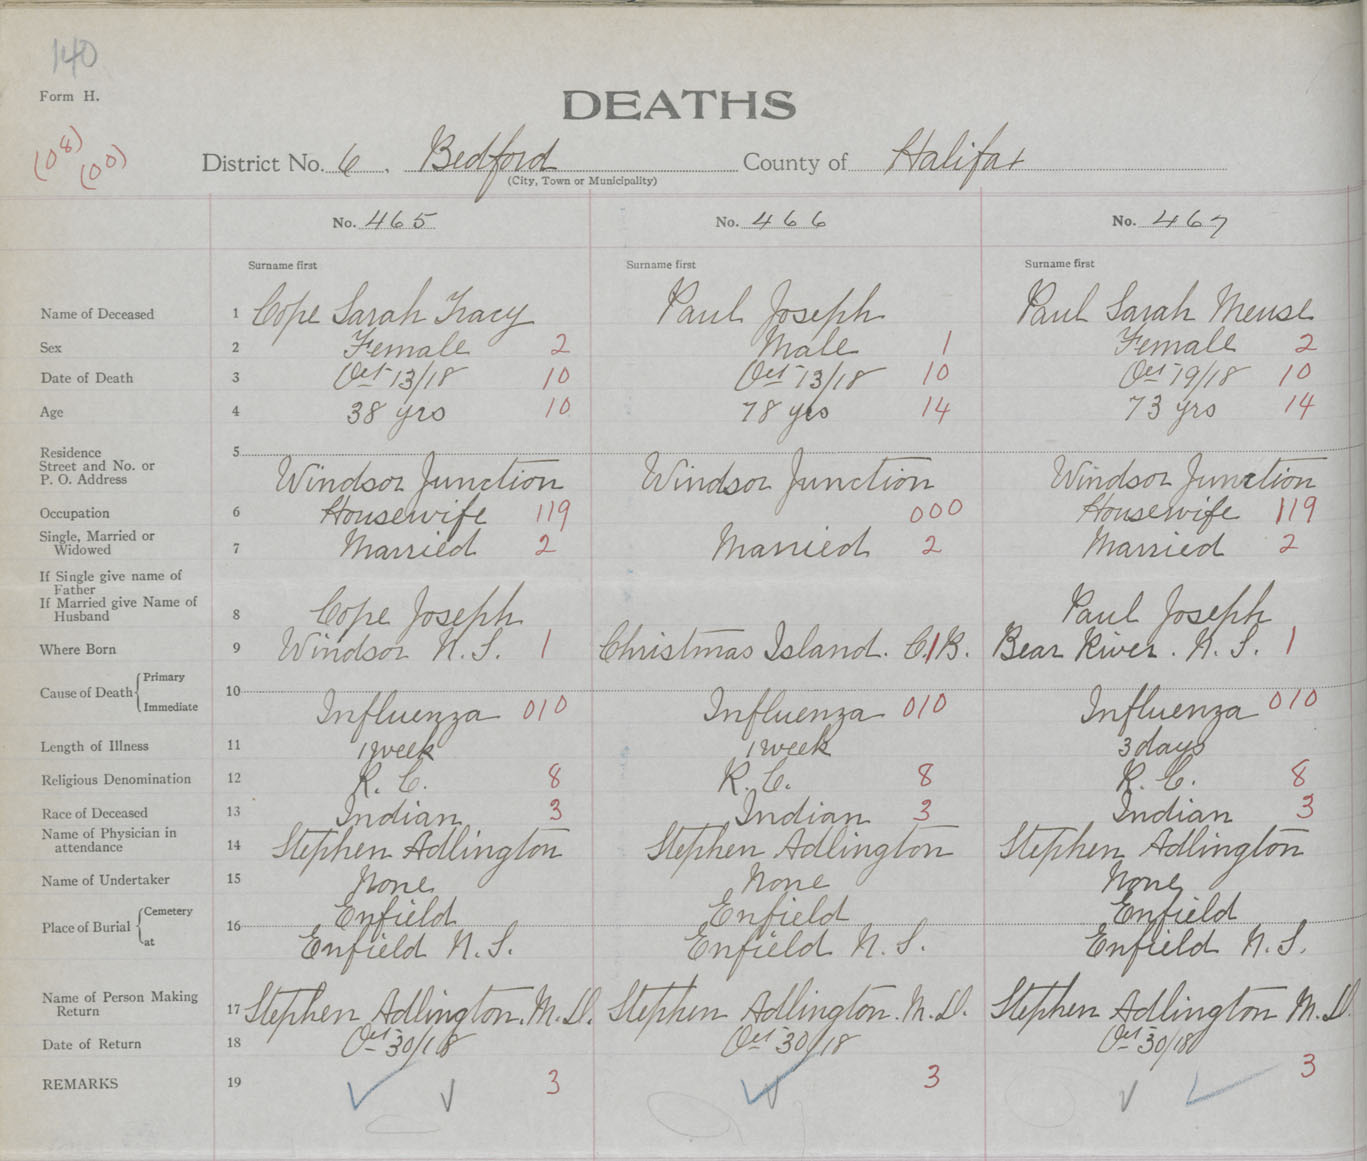 140
Form H.
DEATHS
(08)
(00)
District No. 6. Bedford County of Halifax
(City, Town or Municipality)
No. 465 No. 466 No. 467
Surname first Surname first Surname first
Name of Deceased 1 Cope Sarah Tracy Paul Joseph Paul Sarah Meuse
Sex 2 Female 2 Male 1 Female 2
Date of Death 3 Oct 13/18 10 Oct 13/18 10 Oct 19/18 10
Age 4 38 yrs 10 78 yrs 14 73 yrs 14
Residence 5
Street and No. or
P. O. Address Windsor Junction Windsor Junction Windsor Junction
Occupation 6 Housewife 119 000 Housewife 119
Single, Married or
Widowed 7 Married 2 Married 2 Married 2
If Single give name of
Father
If Married give Name of
Husband 8 Cope Joseph Paul Joseph
Where Born 9 Windsor N.S. 1 Christmas Island. C.B. 1 Bear River. N.S. 1
Cause of Death Primary 10
Immediate Influenza 010 Influenza 010 Influenza 010
Length of Illness 11 1 week 1 week 3 days
Religious Denomination 12 R.C. 8 R.C. 8 R.C. 8
Race of Deceased 13 Indian 3 Indian 3 Indian 3
Name of Physician in
attendance 14 Stephen Adlington Stephen Adlington Stephen Adlington
Name of Undertaker 15 None None None
Place of Burial Cemetery 16 Enfield Enfield Enfield
at Enfield N.S. Enfield N.S. Enfield N.S.
Name of Person Making
Return 17 Stephen Adlington. M.D. Stephen Adlington. M.D. Stephen Adlington M.D.
Date of Return 18 Oct 30/18 Oct 30/18 Oct 30/18
REMARKS 19 3 3 3